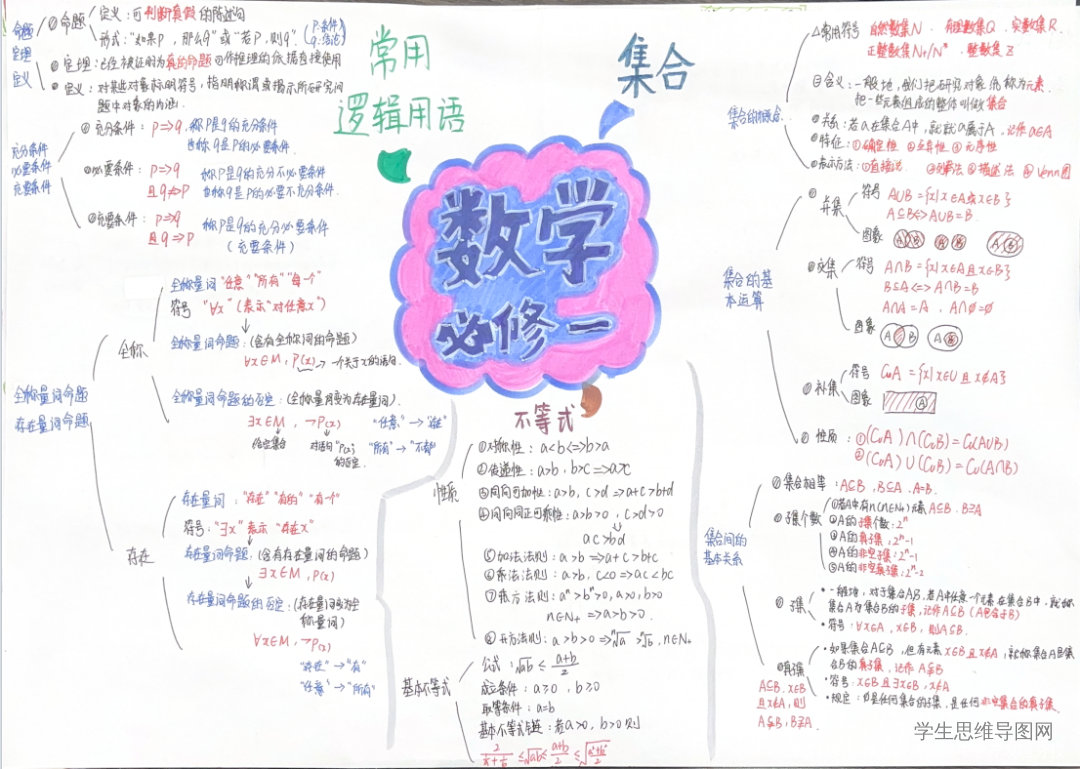 数学
必修一
常用
逻辑用语
命题
定理
定义
①命题
定义：可判断真假的陈述句
形式："如果P，那么q"或"若P，则q"。
(P:条件)
(q:结论)
定理：已经被证明为真的命题
定义：对某些对象标明符号，指明称谓或揭示所研究问
题中对象的内涵
充分条件
必要条件
充要条件
①充分条件：P⇒q，称P是q的充分条件
也称q是P的必要条件.
②必要条件：P⇒q 称P是q的充分不必要条件
且q⇏P 也称q是P的必要不充分条件.
③充要条件：P⇒q 称P是q的充分必要条件
且q⇒P (充要条件)
全称量词命题
存在量词命题
全称
全称量词"任意""所有""每一个"
符号 "∀x"(表示"对任意x")
全称量词命题：(含有全称量词的命题)
∀x∈M，P(x)→一个关于x的语句.
全称量词命题的否定：(全称量词变为存在量词).
∃x∈M，¬P(x) "任意"→"存在"
给定集合 对语句"P(x)" "所有"→"不都"
的否定.
存在
存在量词："存在""有的""有一个"
符号："∃x"表示"存在x"
存在量词命题：(含有存在量词的命题)
∃x∈M，P(x)
存在量词命题的否定：(存在量词变为全
称量词)
∀x∈M，¬P(x)
"存在"→"有"
"任意"→"所有"
不等式
性质
①对称性：a<b<=>b>a
②传递性：a>b，b>c⇒a>c
③同向可加性：a>b，c>d⇒a+c>b+d
④同向同正可乘性：a>b>0，c>d>0
⇓
ac>bd
⑤加法法则：a>b⇒a+c>b+c
⑥乘法法则：a>b，c<0⇒ac<bc
⑦乘方法则：aⁿ>bⁿ>0，a>0，b>0
n∈N₊ ⇒a>b>0.
⑧开方法则：a>b>0⇒ⁿ√a>ⁿ√b，n∈N₊
基本不等式
公式：√ab≤(a+b)/2
成立条件：a≥0，b≥0
取等条件：a=b
基本不等式链：若a>0，b>0则
2/(1/a+1/b)≤√ab≤(a+b)/2≤√((a²+b²)/2)
集合
集合的概念
△常用符号 自然数集N. 有理数集Q. 实数集R.
正整数集N₊/N*. 整数集Z
含义：一般地，我们把研究对象统称为元素.
把一些元素组成的整体叫做集合
关系：若a在集合A中，就说a属于A，记作a∈A
特征：①确定性 ②互异性 ③无序性
表示方法：①直接法 ②列举法 ③描述法 ④Venn图
集合的基
本运算
①并集
符号 A∪B={x|x∈A或x∈B}
A⊆B<=>A∪B=B.
图象 A B A B A B
②交集
符号 A∩B={x|x∈A且x∈B}
B⊆A<=>A∩B=B
A∩A=A，A∩∅=∅
图象 A B A B
补集
符号 CᵤA={x|x∈U且x∉A}
图象 A
性质：①(CᵤA)∩(CᵤB)=Cᵤ(A∪B)
②(CᵤA)∪(CᵤB)=Cᵤ(A∩B)
集合间的
基本关系
①集合相等：A⊆B，B⊆A，A=B.
②子集个数
①若A中有n(n∈N₊)元素 A⊆B，B⊇A
②A的子集个数：2ⁿ
③A的真子集：2ⁿ-1
④A的非空子集：2ⁿ-1
⑤A的非空真子集：2ⁿ-2
③子集
·一般地，对于集合A，B，若A中任意一个元素在集合B中，就称
集合A为集合B的子集，记作A⊆B(A包含于B)
·符号：∀x∈A，x∈B，则A⊆B.
④真子集
A⊆B，x∈B
且x∉A，则
A⫋B，B⫌A.
·如果集合A⊆B，但有元素x∈B且x∉A，就称集合A是集
合B的真子集，记作A⫋B
·符号：x∈B且∃x∈B，x∉A
·规定：∅是任何集合的子集，是任何非空集合的真子集.
学生思维导图网